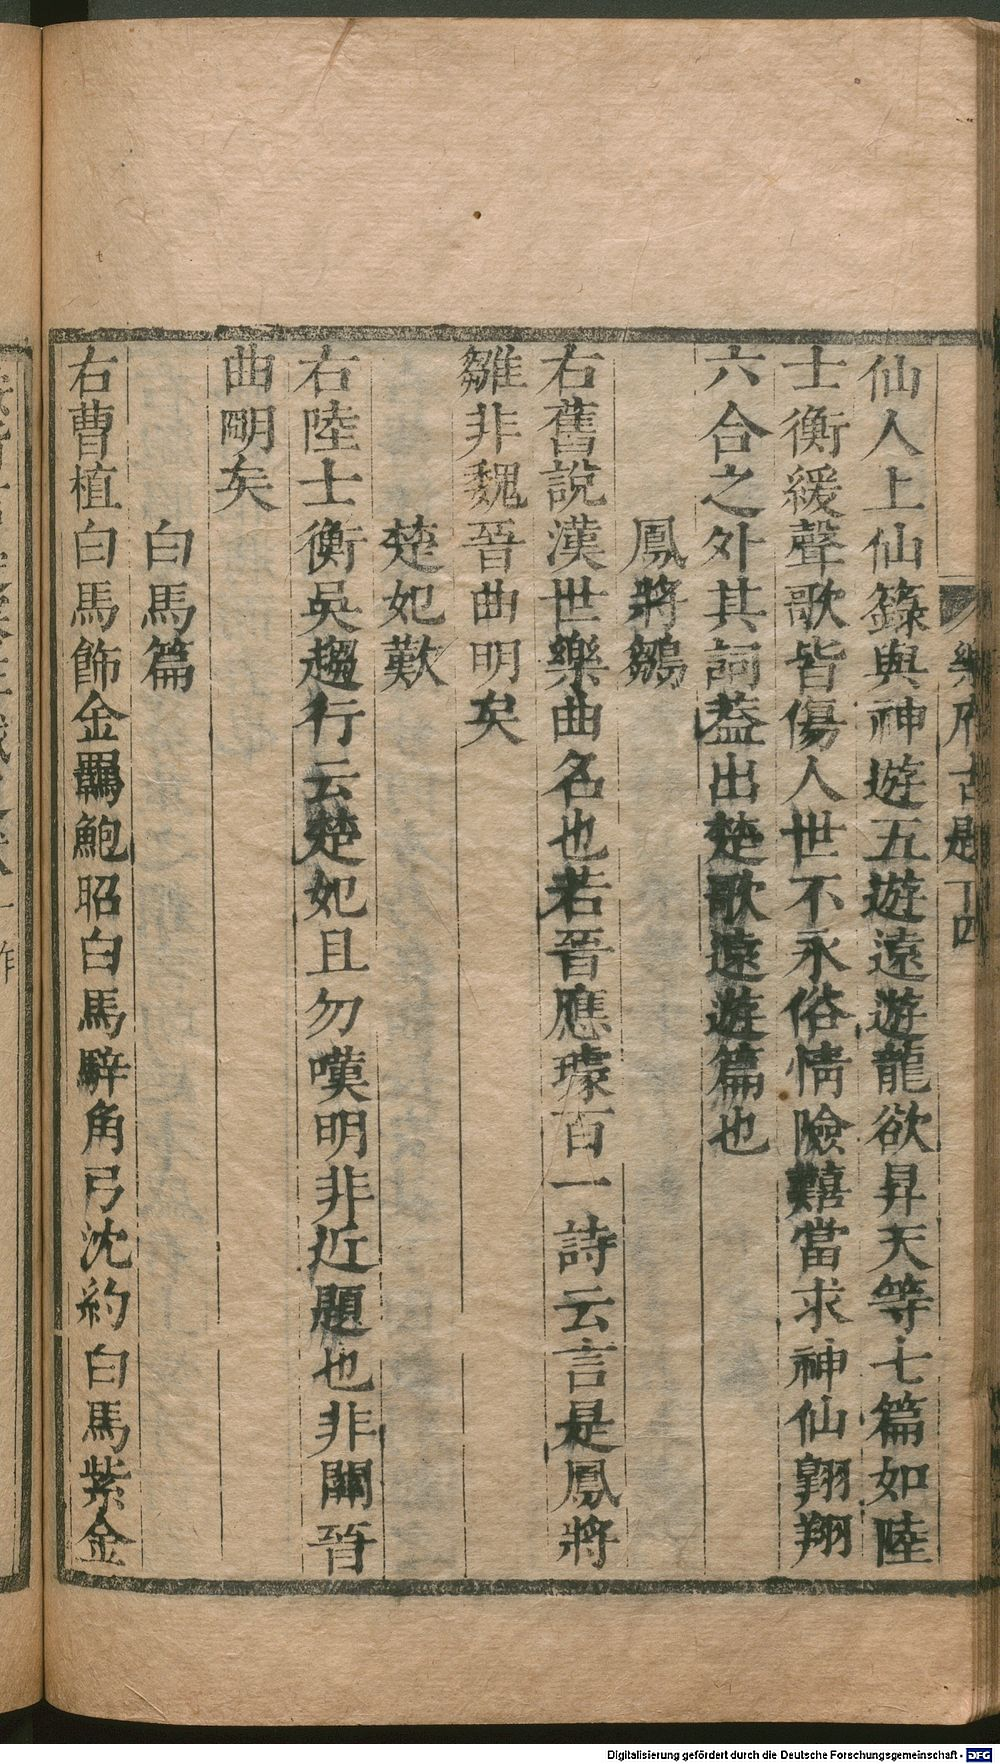 樂府古題 十四
仙人上仙籙與神遊五遊遠遊龍欲昇天等七篇如陸
士衡緩聲歌皆傷人世不永俗情險艱當求神仙翶翔
六合之外其詞葢出楚歌遠遊篇也
鳳將鶵
右舊說漢世樂曲名也若晉應璩百一詩云言是鳳將
雛非魏晉曲明矣
楚妃歎
右陸士衡吳趨行云楚妃且勿嘆明非近題也非關晉
曲明矣
白馬篇
右曹植白馬飾金羈鮑昭白馬騂角弓沈約白馬紫金
Digitalisierung gefördert durch die Deutsche Forschungsgemeinschaft - DFG